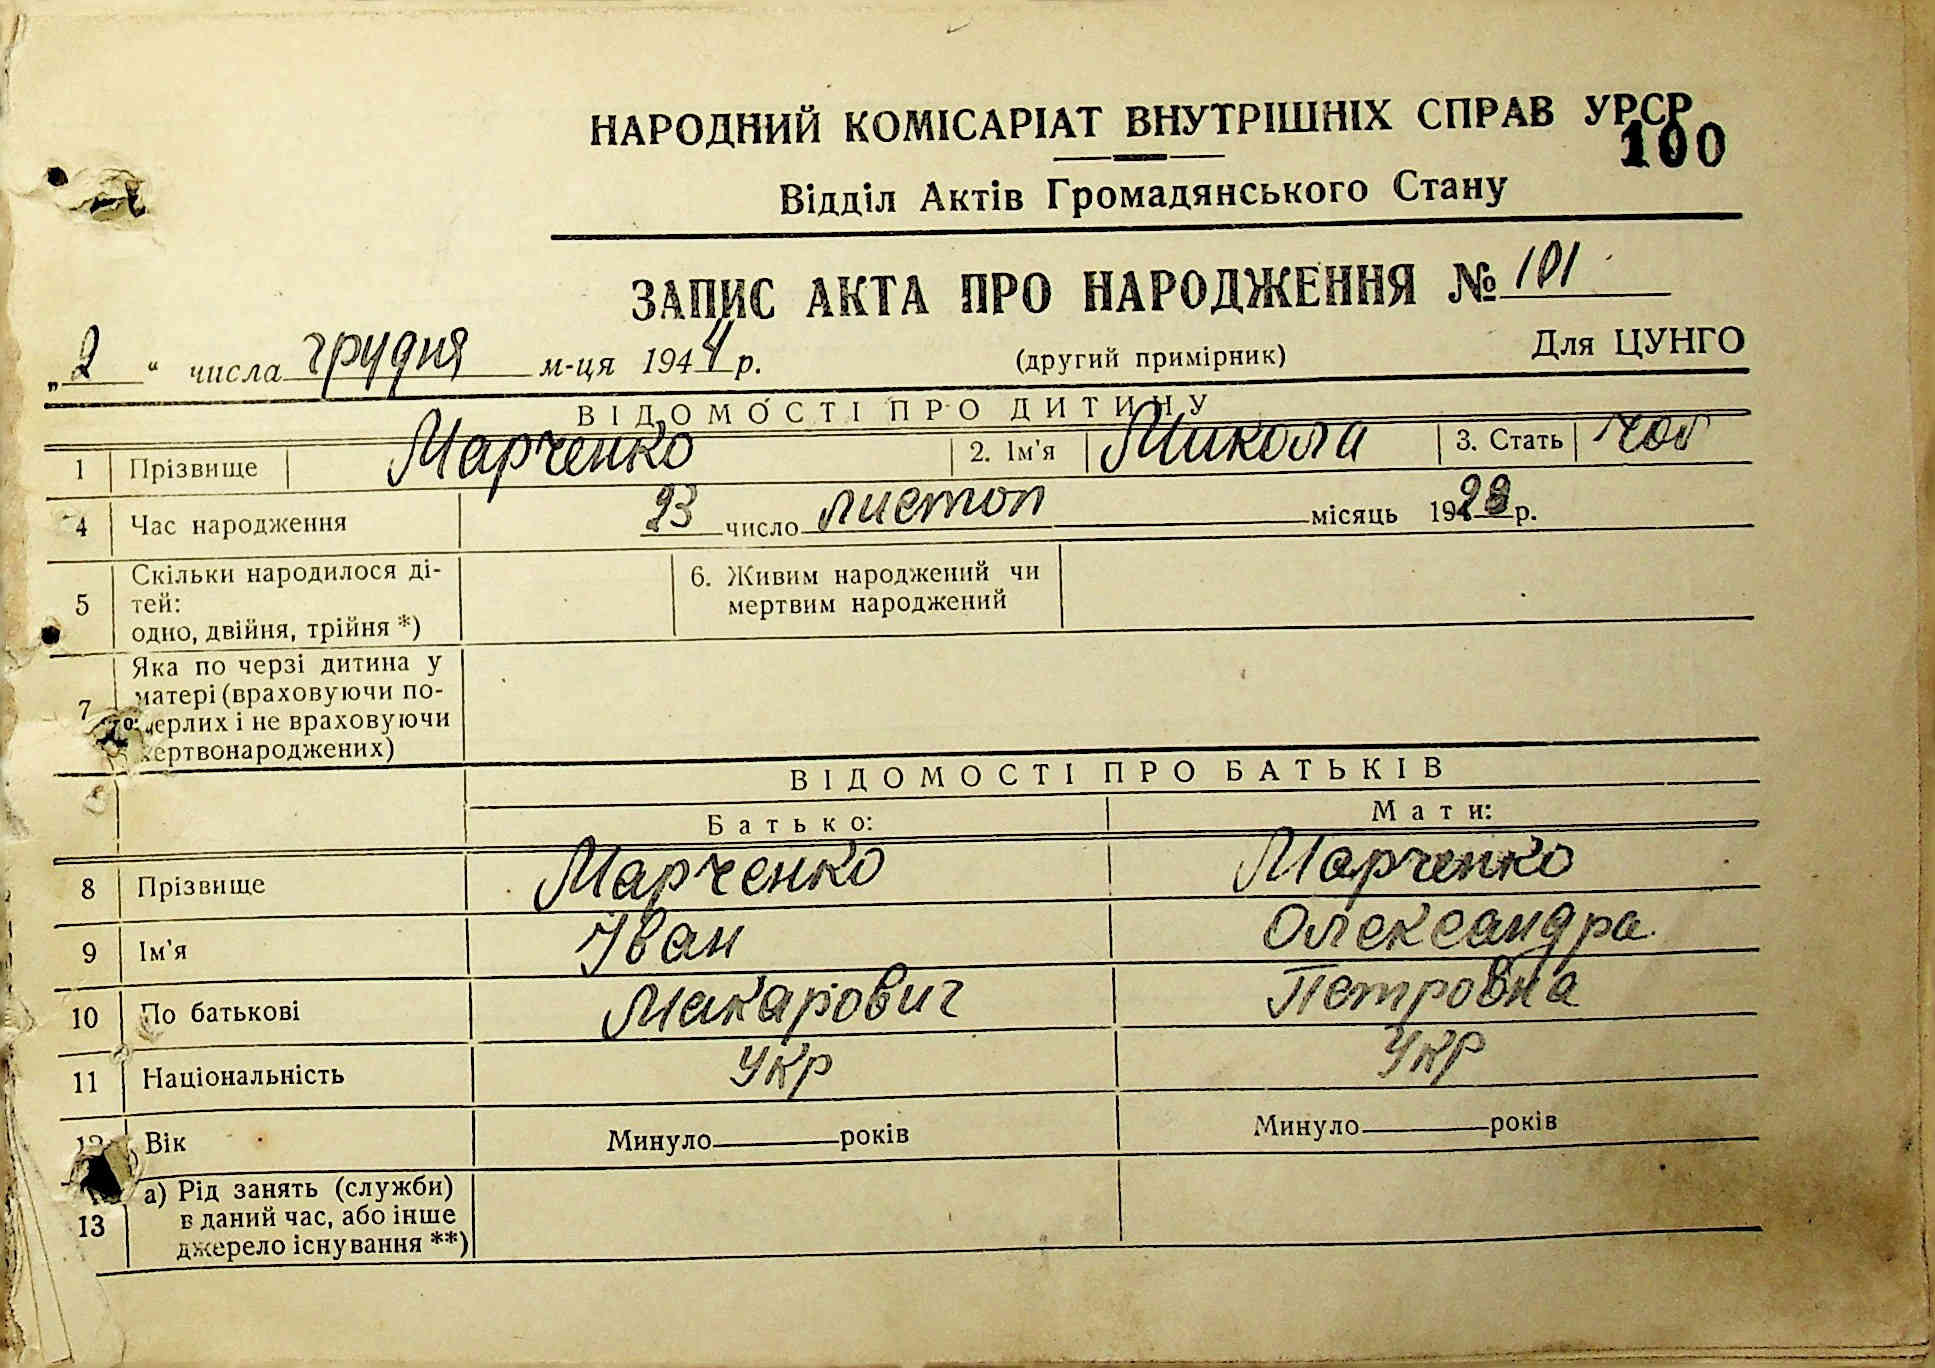 НАРОДНИЙ КОМІСАРІАТ ВНУТРІШНІХ СПРАВ УРСР
100
Відділ Актів Громадянського Стану
ЗАПИС АКТА ПРО НАРОДЖЕННЯ № 101
„2“ числа грудня м-ця 1944 р. (другий примірник) Для ЦУНГО
ВІДОМОСТІ ПРО ДИТИНУ
1 Прізвище Марченко 2. Ім'я Микола 3. Стать чол
4 Час народження 23 число листоп місяць 1928 р.
5 Скільки народилося ді-
тей:
одно, двійня, трійня *)
6. Живим народжений чи
мертвим народжений
7 Яка по черзі дитина у
матері (враховуючи по-
мерлих і не враховуючи
мертвонароджених)
ВІДОМОСТІ ПРО БАТЬКІВ
Батько: Мати:
8 Прізвище Марченко Марченко
9 Ім'я Іван Олександра
10 По батькові Макарович Петровна
11 Національність Укр Укр
12 Вік Минуло років Минуло років
13 а) Рід занять (служби)
в даний час, або інше
джерело існування **)